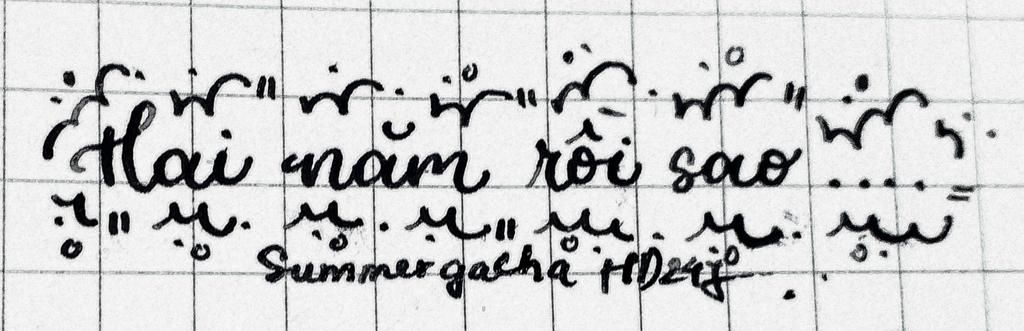 Hai năm rồi sao ....
Summer gacha HD24j